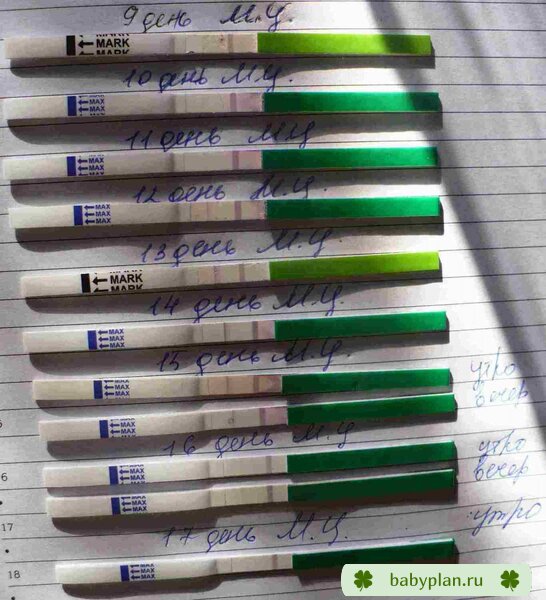 9 день М.Ц.
MARK
← MARK
MARK
10 день М.Ц.
MAX
← MAX
MAX
11 день М.Ц
MAX
← MAX
MAX
12 день М.Ц.
MAX
← MAX
MAX
13 день М.Ц.
MARK
← MARK
MARK
14 день М.Ц.
MAX
← MAX
MAX
15 день М.Ц.
утро
MAX
← MAX
MAX
вечер
MAX
← MAX
MAX
16 день М.Ц
утро
MAX
← MAX
MAX
6
вечер
MAX
← MAX
MAX
17
утро
17 день М.Ц.
MAX
← MAX
MAX
18
babyplan.ru